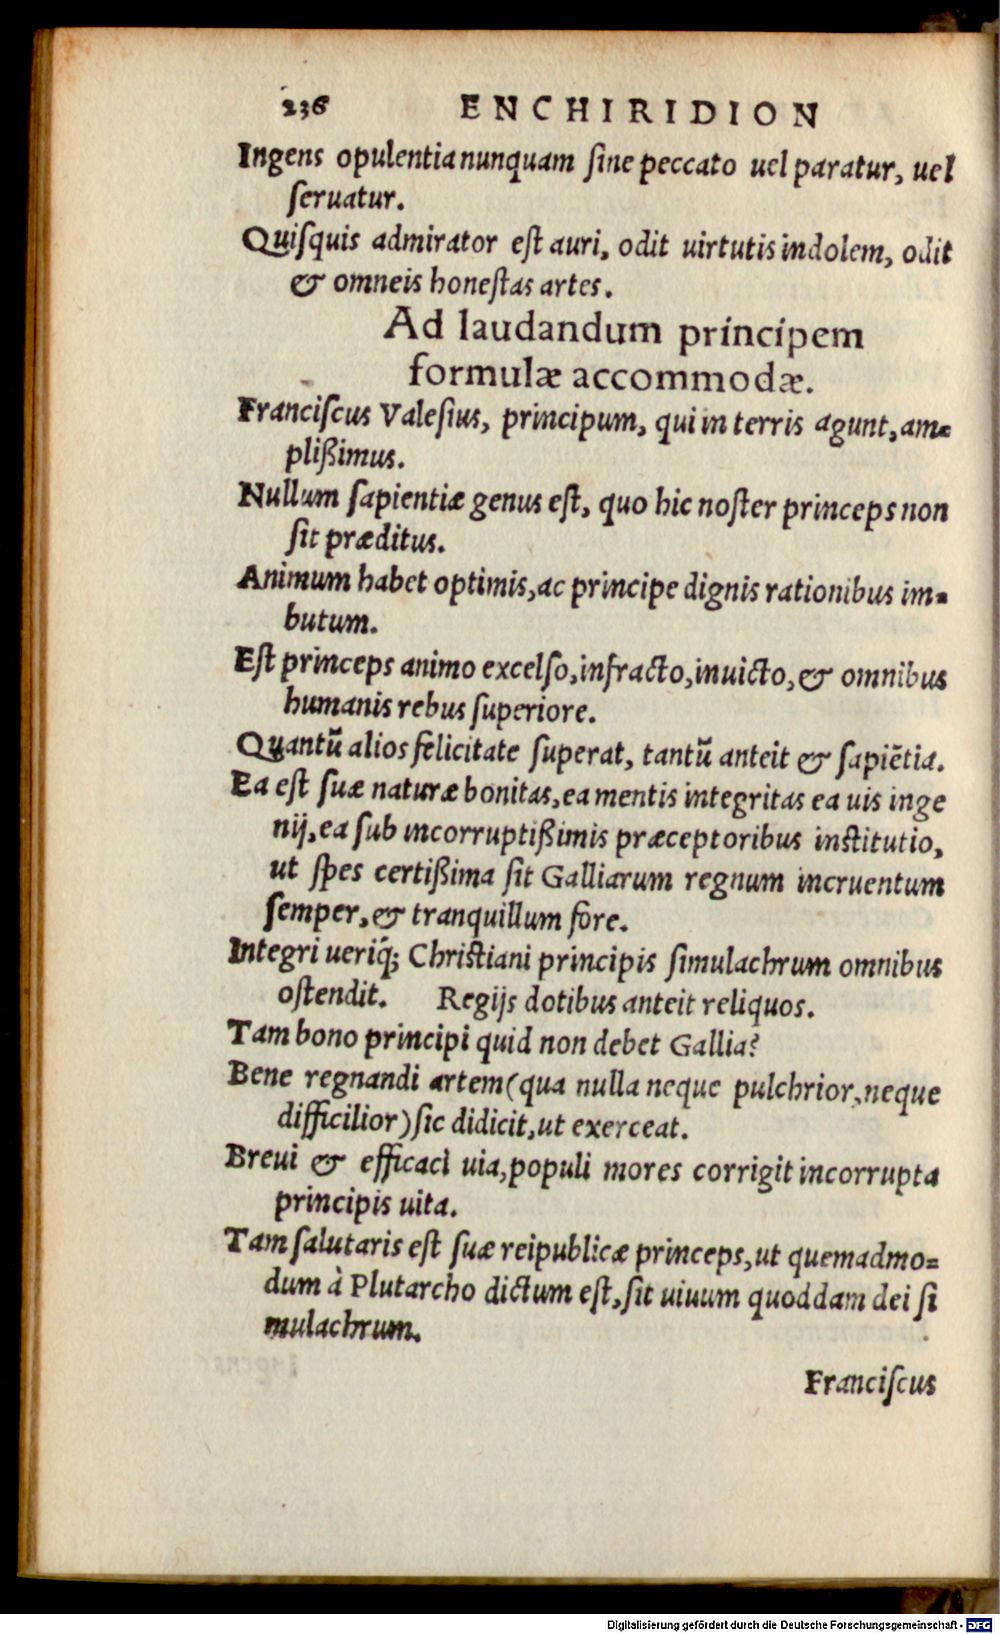 236 ENCHIRIDION
Ingens opulentia nunquam ſine peccato uel paratur, uel
ſeruatur.
Quiſquis admirator eſt auri, odit uirtutis indolem, odit
& omneis honeſtas artes.
Ad laudandum principem
formulæ accommodæ.
Franciſcus Valeſius, principum, qui in terris agunt, am-
plißimus.
Nullum ſapientiæ genus eſt, quo hic noſter princeps non
ſit præditus.
Animum habet optimis, ac principe dignis rationibus im-
butum.
Eſt princeps animo excelſo, infracto, inuicto, & omnibus
humanis rebus ſuperiore.
Quantũ alios felicitate ſuperat, tantũ anteit & ſapiẽtia.
Ea eſt ſuæ naturæ bonitas, ea mentis integritas ea uis inge
nij, ea ſub incorruptißimis præceptoribus inſtitutio,
ut ſpes certißima ſit Galliarum regnum incruentum
ſemper, & tranquillum fore.
Integri ueriq́; Chriſtiani principis ſimulachrum omnibus
oſtendit. Regijs dotibus anteit reliquos.
Tam bono principi quid non debet Gallia?
Bene regnandi artem (qua nulla neque pulchrior, neque
difficilior) ſic didicit, ut exerceat.
Breui & efficaci uia, populi mores corrigit incorrupta
principis uita.
Tam ſalutaris eſt ſuæ reipublicæ princeps, ut quemadmo-
dum à Plutarcho dictum eſt, ſit uiuum quoddam dei ſi
mulachrum.
Franciſcus
Digitalisierung gefördert durch die Deutsche Forschungsgemeinschaft - DFG